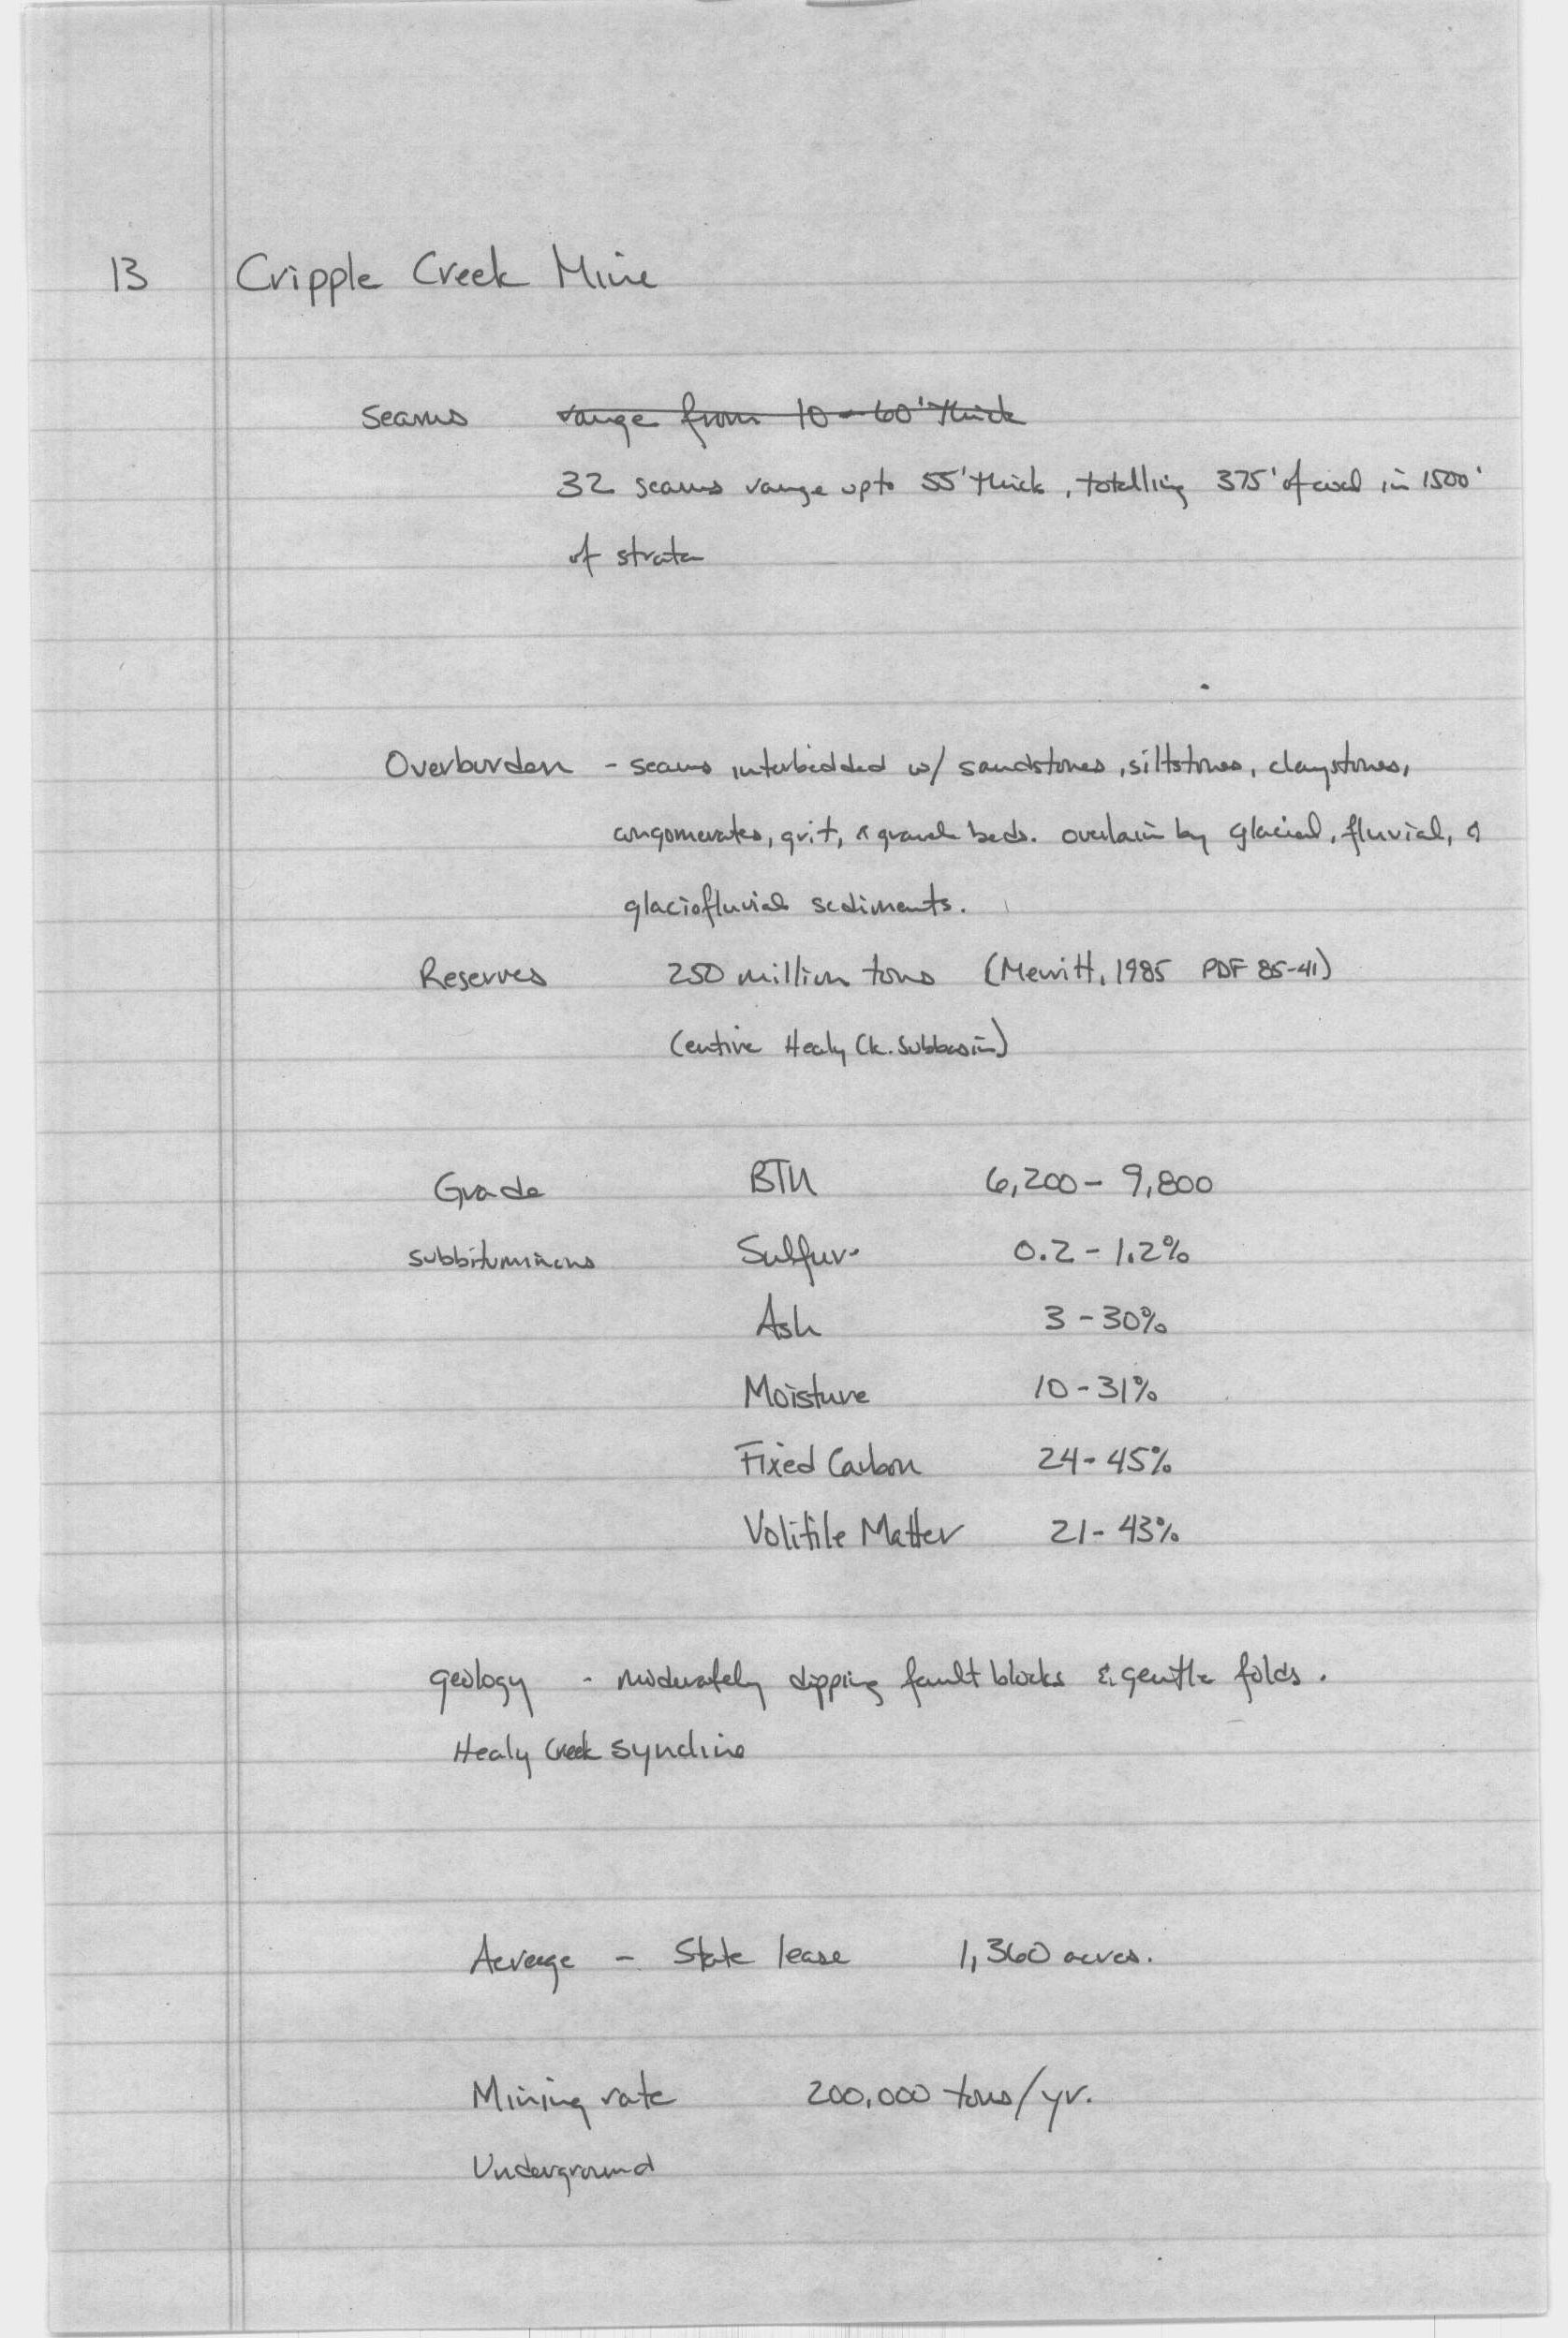 13 Cripple Creek Mine
Seams range from 10-60' thick
32 seams range upto 55' thick, totalling 375' of coal in 1500'
of strata
Overburden - seams interbedded w/ sandstones, siltstones, claystones,
congomerates, grit, & gravel beds. overlain by glacial, fluvial, &
glaciofluvial sediments.
Reserves 250 million tons (Merritt, 1985 PDF 85-41)
(entire Healy Ck. Subbasin)
Grade BTU 6,200 - 9,800
subbituminous Sulfur 0.2 - 1.2%
Ash 3 - 30%
Moisture 10 - 31%
Fixed Carbon 24 - 45%
Volitile Matter 21 - 43%
geology - moderately dipping fault blocks & gentle folds.
Healy Creek syncline
Acreage - State lease 1,360 acres.
Mining rate 200,000 tons/yr.
Underground